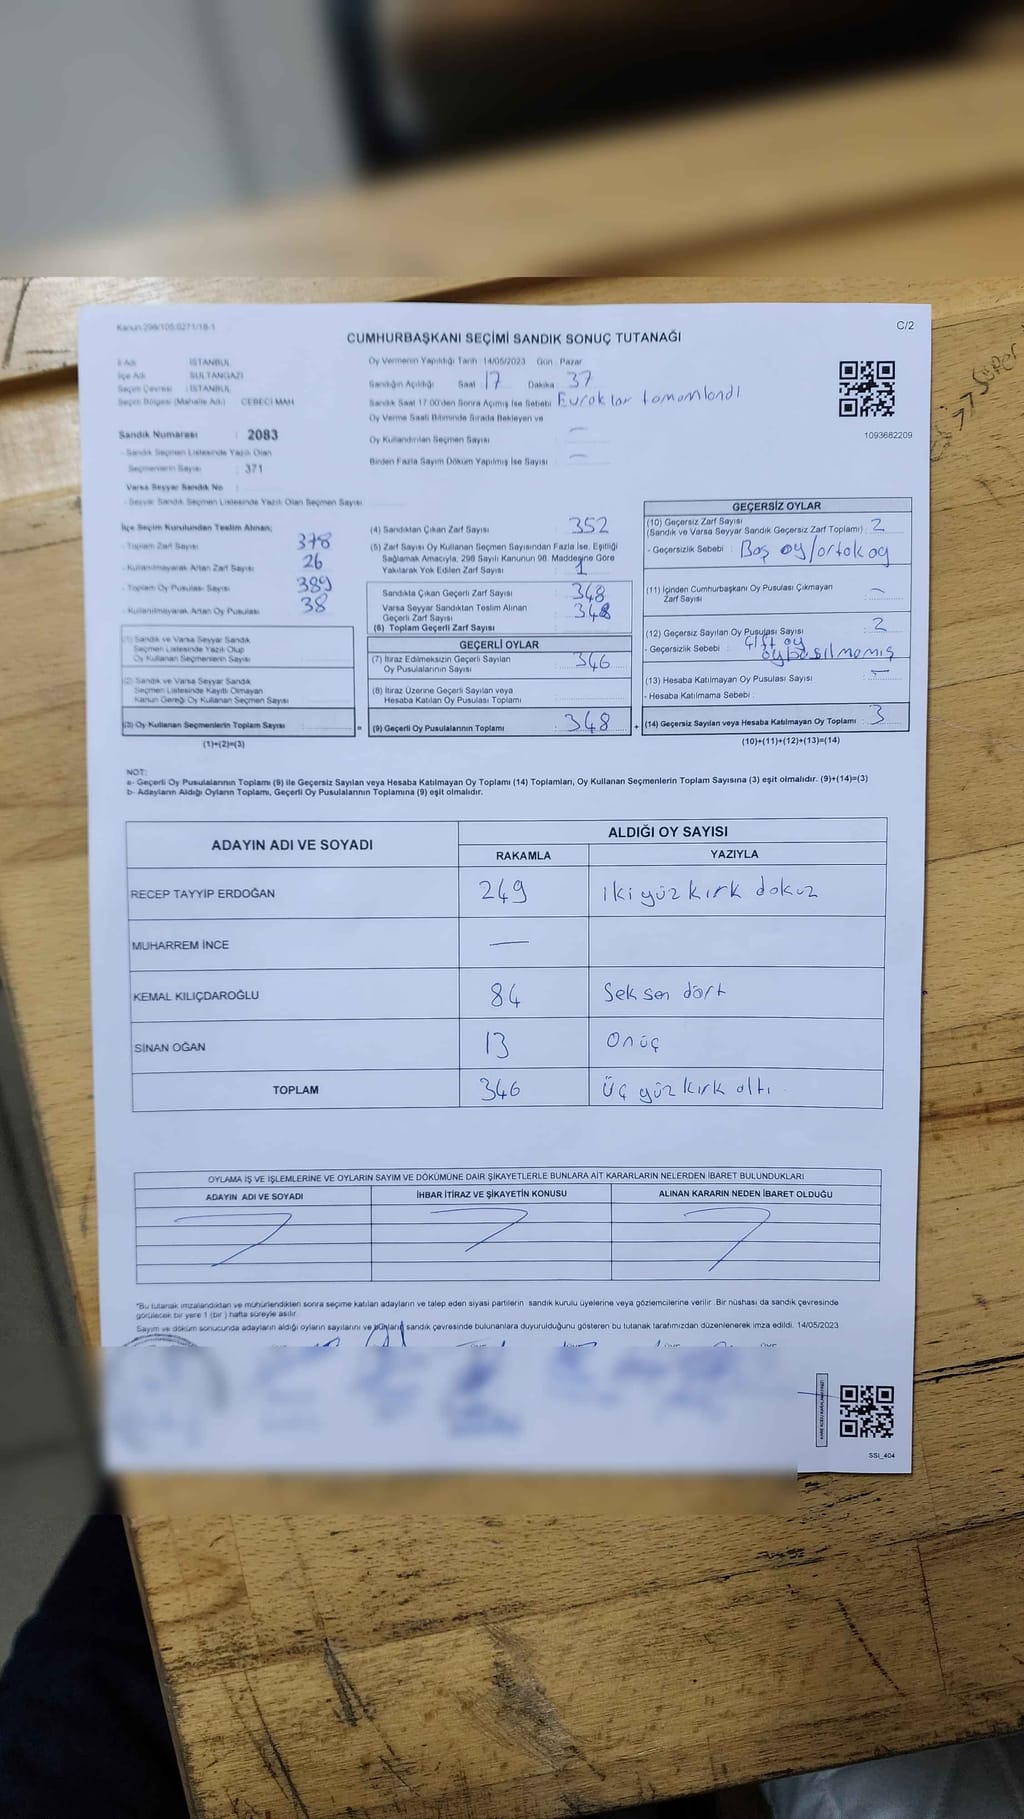 Kanun:298/105,0271/18-1
C/2
CUMHURBAŞKANI SEÇİMİ SANDIK SONUÇ TUTANAĞI
İli Adı : İSTANBUL
İlçe Adı : SULTANGAZİ
Seçim Çevresi : İSTANBUL
Seçim Bölgesi (Mahalle Adı) : CEBECİ MAH
Sandık Numarası : 2083
- Sandık Seçmen Listesinde Yazılı Olan
Seçmenlerin Sayısı : 371
Varsa Seyyar Sandık No :
- Seyyar Sandık Seçmen Listesinde Yazılı Olan Seçmen Sayısı
Oy Vermenin Yapıldığı Tarih : 14/05/2023 Gün : Pazar
Sandığın Açıldığı Saat 17 Dakika : 37
Sandık Saat 17:00'den Sonra Açımış İse Sebebi : Evraklar tamamlandı
Oy Verme Saati Bitiminde Sırada Bekleyen ve
Oy Kullandırılan Seçmen Sayısı : —
Birden Fazla Sayım Döküm Yapılmış İse Sayısı : —
1093682209
İlçe Seçim Kurulundan Teslim Alınan;
- Toplam Zarf Sayısı : 378
- Kullanılmayarak Artan Zarf Sayısı : 26
- Toplam Oy Pusulası Sayısı : 389
- Kullanılmayarak Artan Oy Pusulası : 38
(1) Sandık ve Varsa Seyyar Sandık
Seçmen Listesinde Yazılı Olup
Oy Kullanan Seçmenlerin Sayısı
(2) Sandık ve Varsa Seyyar Sandık
Seçmen Listesinde Kayıtlı Olmayan
Kanun Gereği Oy Kullanan Seçmen Sayısı
(3) Oy Kullanan Seçmenlerin Toplam Sayısı
(1)+(2)=(3)
(4) Sandıktan Çıkan Zarf Sayısı : 352
(5) Zarf Sayısı Oy Kullanan Seçmen Sayısından Fazla İse, Eşitliği
Sağlamak Amacıyla, 298 Sayılı Kanunun 98. Maddesine Göre
Yakılarak Yok Edilen Zarf Sayısı : 1
Sandıkta Çıkan Geçerli Zarf Sayısı : 348
Varsa Seyyar Sandıktan Teslim Alınan
Geçerli Zarf Sayısı : 348
(6) Toplam Geçerli Zarf Sayısı
GEÇERLİ OYLAR
(7) İtiraz Edilmeksizin Geçerli Sayılan
Oy Pusulalarının Sayısı : 346
(8) İtiraz Üzerine Geçerli Sayılan veya
Hesaba Katılan Oy Pusulası Toplamı :
= (9) Geçerli Oy Pusulalarının Toplamı : 348
GEÇERSİZ OYLAR
(10) Geçersiz Zarf Sayısı
(Sandık ve Varsa Seyyar Sandık Geçersiz Zarf Toplamı) : 2
- Geçersizlik Sebebi : Boş oy/ortak oy
(11) İçinden Cumhurbaşkanı Oy Pusulası Çıkmayan
Zarf Sayısı : —
(12) Geçersiz Sayılan Oy Pusulası Sayısı : 2
- Geçersizlik Sebebi : Çift oy
oy basılmamış
(13) Hesaba Katılmayan Oy Pusulası Sayısı : —
- Hesaba Katılmama Sebebi :
+ (14) Geçersiz Sayılan veya Hesaba Katılmayan Oy Toplamı : 3
(10)+(11)+(12)+(13)=(14)
NOT:
a- Geçerli Oy Pusulalarının Toplamı (9) ile Geçersiz Sayılan veya Hesaba Katılmayan Oy Toplamı (14) Toplamları, Oy Kullanan Seçmenlerin Toplam Sayısına (3) eşit olmalıdır. (9)+(14)=(3)
b- Adayların Aldığı Oyların Toplamı, Geçerli Oy Pusulalarının Toplamına (9) eşit olmalıdır.
ADAYIN ADI VE SOYADI
ALDIĞI OY SAYISI
RAKAMLA YAZIYLA
RECEP TAYYİP ERDOĞAN 249 iki yüz kırk dokuz
MUHARREM İNCE —
KEMAL KILIÇDAROĞLU 84 Seksen dört
SİNAN OĞAN 13 On üç
TOPLAM 346 üç yüz kırk altı
OYLAMA İŞ VE İŞLEMLERİNE VE OYLARIN SAYIM VE DÖKÜMÜNE DAİR ŞİKAYETLERLE BUNLARA AİT KARARLARIN NELERDEN İBARET BULUNDUKLARI
ADAYIN ADI VE SOYADI İHBAR İTİRAZ VE ŞİKAYETİN KONUSU ALINAN KARARIN NEDEN İBARET OLDUĞU
*Bu tutanak imzalandıktan ve mühürlendikten sonra seçime katılan adayların ve talep eden siyasi partilerin sandık kurulu üyelerine veya gözlemcilerine verilir .Bir nüshası da sandık çevresinde
görülecek bir yere 1 (bir ) hafta süreyle asılır.
Sayım ve döküm sonucunda adayların aldığı oyların sayılarını ve bunların sandık çevresinde bulunanlara duyurulduğunu gösteren bu tutanak tarafımızdan düzenlenerek imza edildi. 14/05/2023
SSI_404